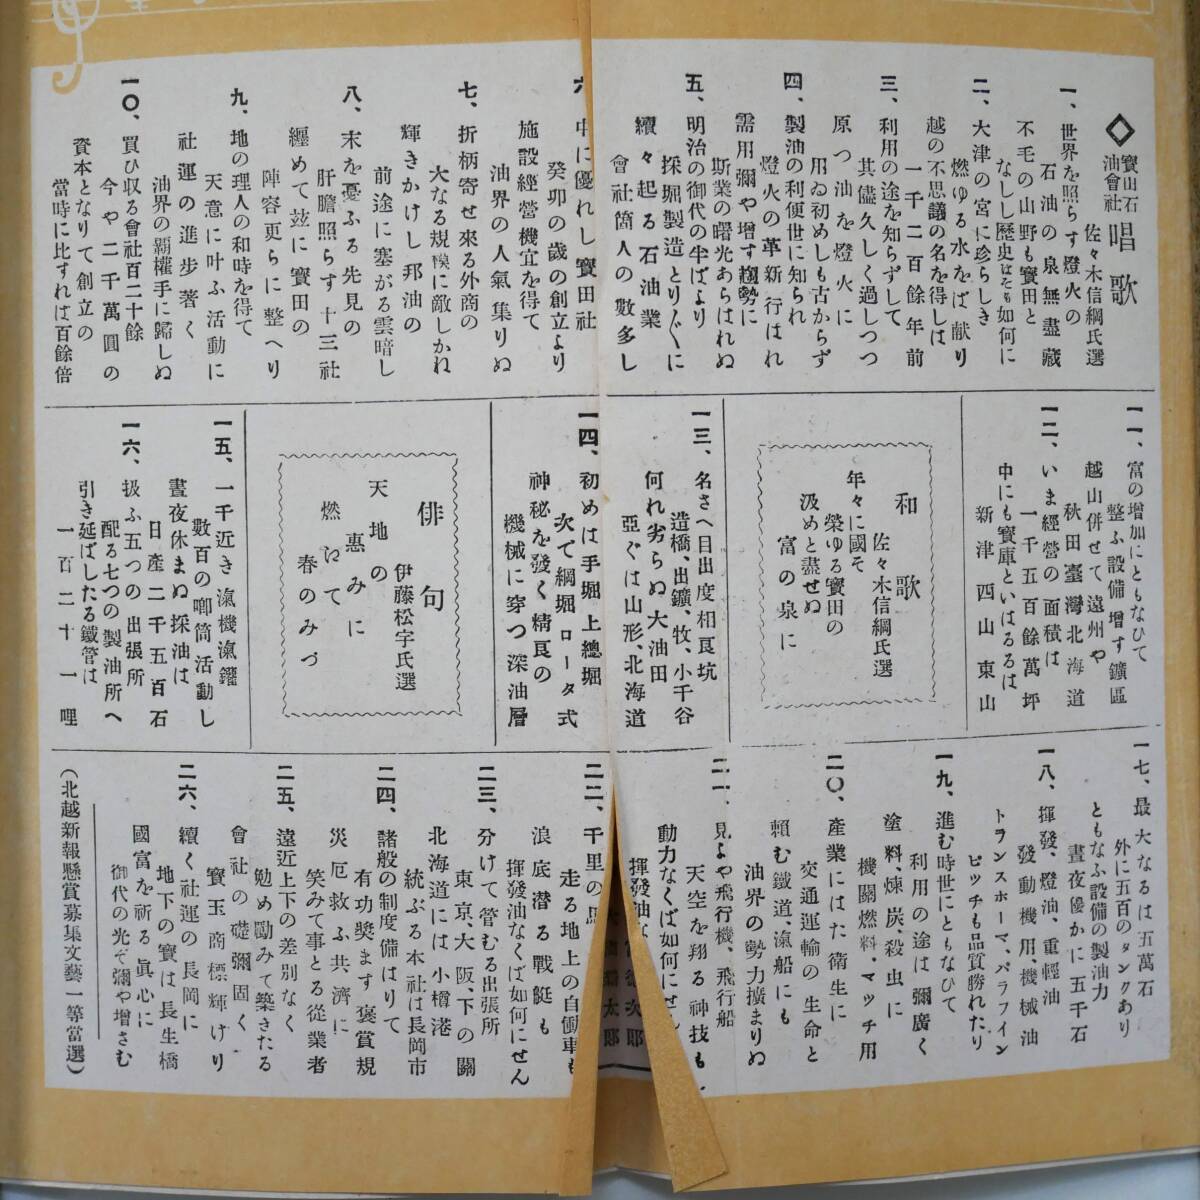 ◇寶田石油會社 唱歌
佐々木信綱氏選
一、世界を照らす燈火の
石油の泉無盡藏
不毛の山野も寶田と
なしし歷史はそも如何に
二、大津の宮に珍らしき
燃ゆる水をば献り
越の不思議の名を得しは
一千二百餘年前
三、利用の途を知らずして
其儘久しく過しつつ
原つ油を燈火に
用ゐ初めしも古からず
四、製油の利便世に知られ
燈火の革新行はれ
需用彌や增す趨勢に
斯業の曙光あらはれぬ
五、明治の御代の半ばより
採堀製造とりぐに
續々起る石油業
會社箇人の數多し
六、中に優れし寶田社
癸卯の歲の創立より
施設經營機宜を得て
油界の人氣集りぬ
七、折柄寄せ來る外商の
大なる規模に敵しかね
輝きかけし邦油の
前途に塞がる雲暗し
八、末を憂ふる先見の
肝膽照らす十三社
纒めて玆に寶田の
陣容更らに整へり
九、地の理人の和時を得て
天意に叶ふ活動に
社運の進步著く
油界の覇權手に歸しぬ
一〇、買ひ収る會社百二十餘
今や二千萬圓の
資本となりて創立の
當時に比すれば百餘倍
一一、富の增加にともなひて
整ふ設備增す鑛區
越山併せて遠州や
秋田臺灣北海道
一二、いま經營の面積は
一千五百餘萬坪
中にも寶庫といはるるは
新津西山東山
和歌
佐々木信綱氏選
年々に國そ
榮ゆる寶田の
汲めと盡せぬ
富の泉に
一三、名さへ目出度相良坑
造橋、出鑛、牧、小千谷
何れ劣らぬ大油田
亞ぐは山形、北海道
一四、初めは手堀上總堀
次て綱堀ロータ式
神秘を發く精良の
機械に穿つ深油層
俳句
伊藤松宇氏選
天地の
惠みに
燃ゐて
春のみづ
一五、一千近き滊機滊鑵
數百の喞筒活動し
晝夜休まぬ採油は
日產二千五百石
一六、扱ふ五つの出張所
配る七つの製油所へ
引き延ばしたる鐵管は
一百二十一哩
一七、最大なるは五萬石
外に五百のタンクあり
ともなふ設備の製油力
晝夜優かに五千石
一八、揮發、燈油、重輕油
發動機用、機械油
トランスホーマ、パラフイン
ピッチも品質勝れたり
一九、進む時世にともなひて
利用の途は彌廣く
塗料、煉炭、殺虫に
機關燃料、マッチ用
二〇、產業にはた衛生に
交通運輸の生命と
賴む鐵道、滊船にも
油界の勢力擴まりぬ
二一、見よや飛行機、飛行船
天空を翔る神技も
動力なくば如何にせん
揮發油な
次郎
太郎
二二、千里の
走る地上の自働車も
浪底潜る戰艇も
揮發油なくば如何にせん
二三、分けて管むる出張所
東京、大阪、下の關
北海道には小樽港
統ぶる本社は長岡市
二四、諸般の制度備はりて
有功獎ます褒賞規
災厄救ふ共濟に
笑みて事とる從業者
二五、遠近上下の差別なく
勉め勵みて築きたる
會社の礎彌固く
寶玉商標輝けり
二六、續く社運の長岡に
地下の寶は長生橋
國富を祈る眞心に
御代の光ぞ彌や增さむ
(北越新報懸賞募集文藝一等當選)